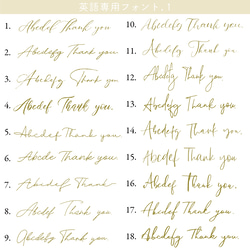 英語専用フォント.1
1. Abcdef Thank you
2. Abcdefg Thank you
3. Abcdefg Thank you
4. Abcdef Thank you.
5. Abcdef Thank you
6. Abcde Thank you
7. Abcdef Thank
8. Abcdef Thank you
9. Abcdefg Thank you
10. Abcdefg Thank you.
11. Abcdefg Thank you
12. Abcdefg Thank you
13. Abcdefg Thank you
14. Abcdef Thank you
15. Abcdef Thank you
16. Abcdef Thank you,
17. Abcdef Thank you
18. Abcdefg Thank you